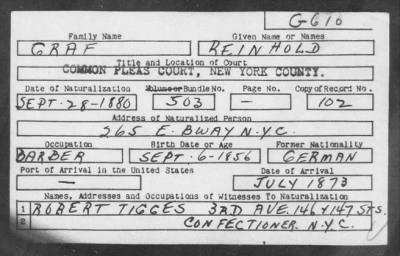 G-610
Family Name Given Name or Names
GRAF REINHOLD
Title and Location of Court
COMMON PLEAS COURT, NEW YORK COUNTY.
Date of Naturalization Volume or Bundle No. Page No. Copy of Record No.
SEPT-28-1880 503 — 102
Address of Naturalized Person
265 E. BWAY N.Y.C.
Occupation Birth Date or Age Former Nationality
BARBER SEPT-6-1856 GERMAN
Port of Arrival in the United States Date of Arrival
— JULY 1873
Names, Addresses and Occupations of Witnesses To Naturalization
1 ROBERT TIGGES 3RD AVE. 146+147 STS.
2 CONFECTIONER. N.Y.C.